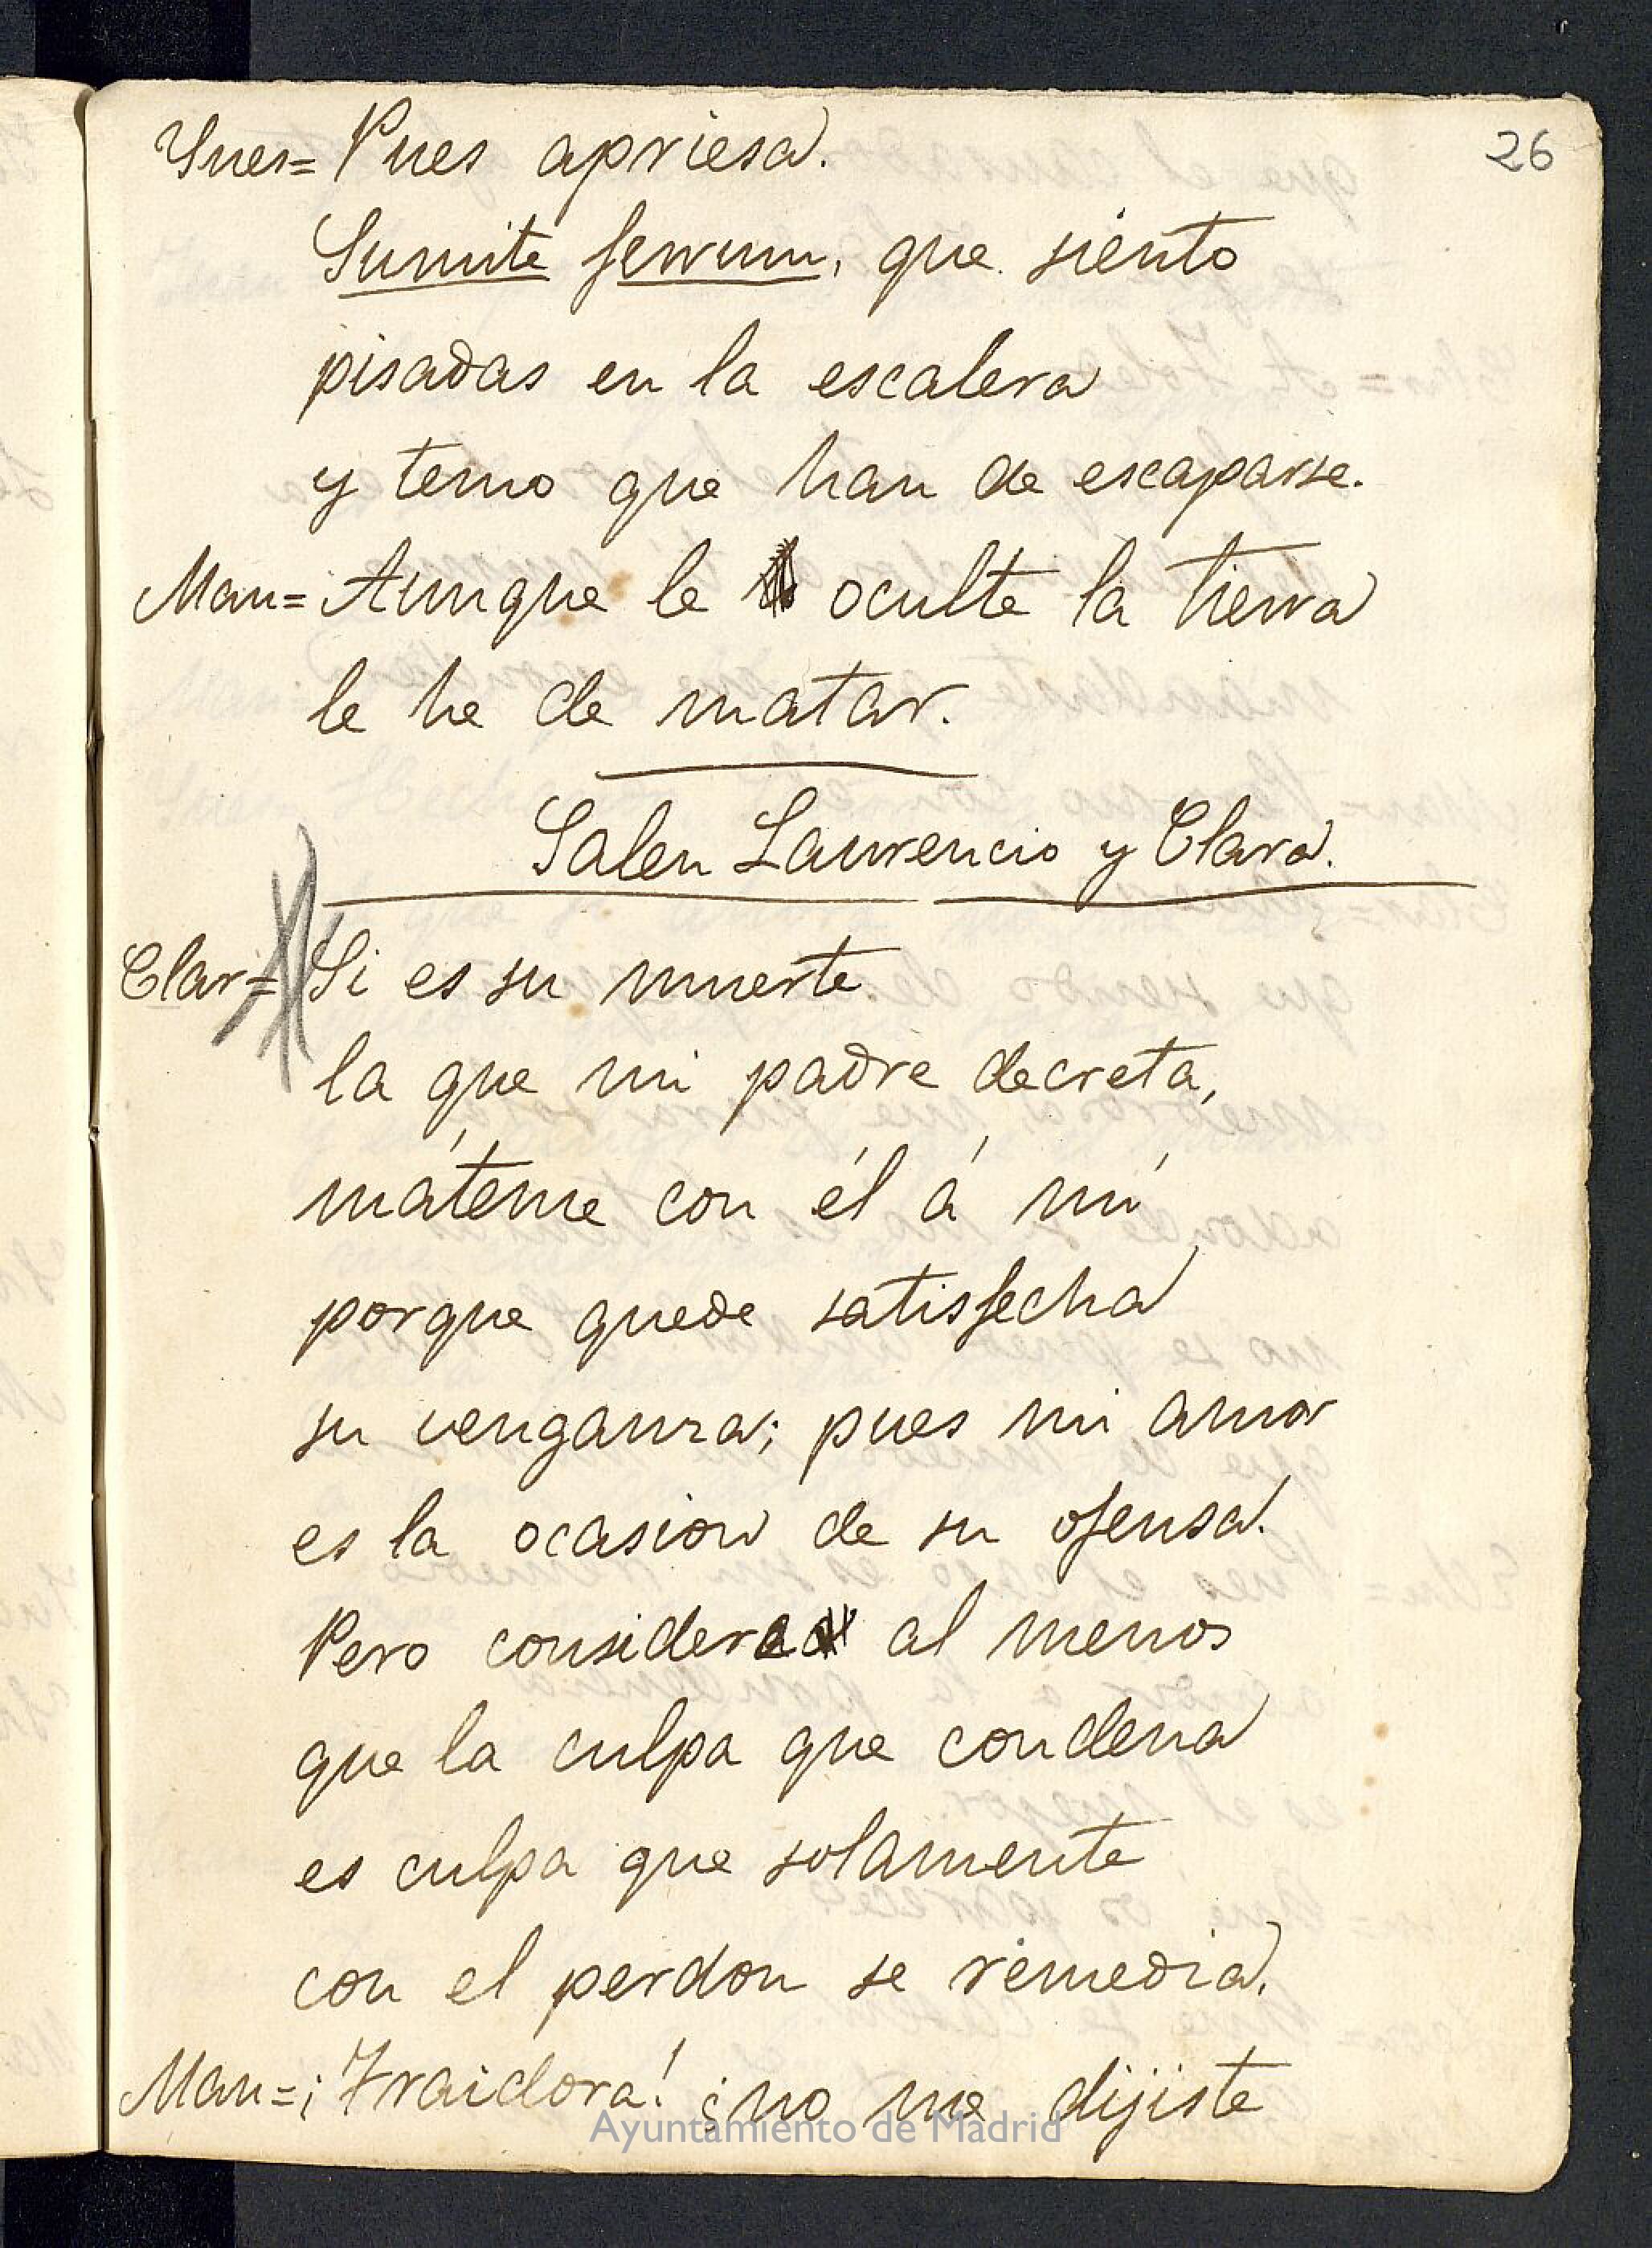 26
Ynes= Pues apriesa.
Sumite ferrum, que siento
pisadas en la escalera
y temo que han de escaparse.
Man= Aunque le oculte la tierra
le he de matar.
Salen Laurencio y Clara.
Clar= Si es su muerte
la que mi padre decreta,
máteme con él á mí
porque quede satisfecha
su venganza; pues mi amor
es la ocasion de su ofensa.
Pero considerad al menos
que la culpa que condena
es culpa que solamente
con el perdon se remedia.
Man= ¡Traidora! ¿no me dijiste
Ayuntamiento de Madrid